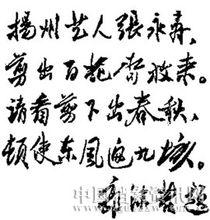 揚州艺人張永寿、
剪出百花齐放来。
请看剪下出春秋、
顿使东風遍九垓。
郭沫若题